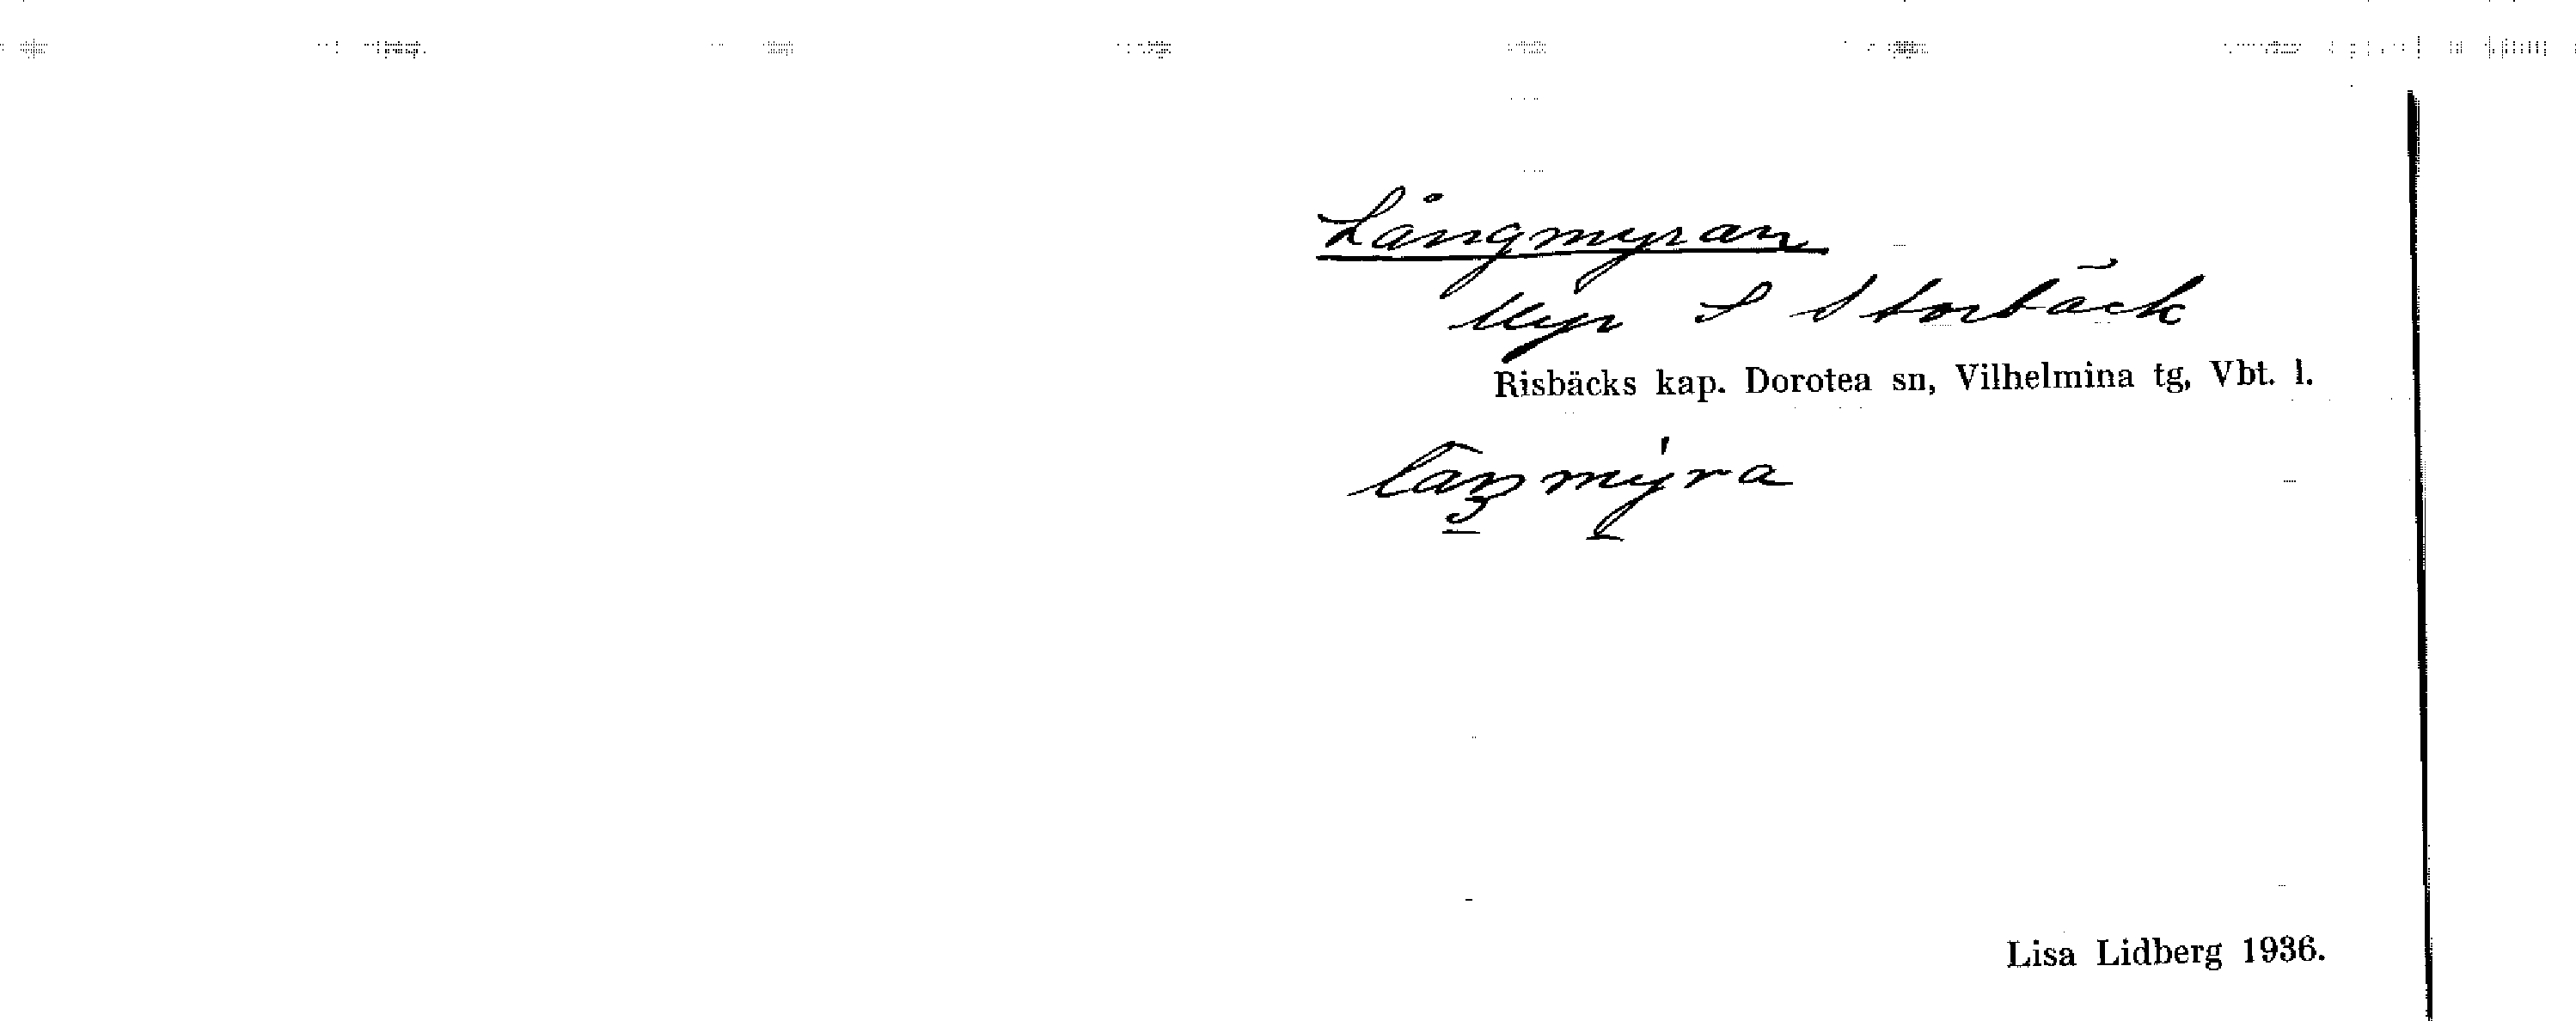 Långmyran
Myr S Storbäck
Risbäcks kap. Dorotea sn, Vilhelmina tg, Vbt. l.
Lisa Lidberg 1936.